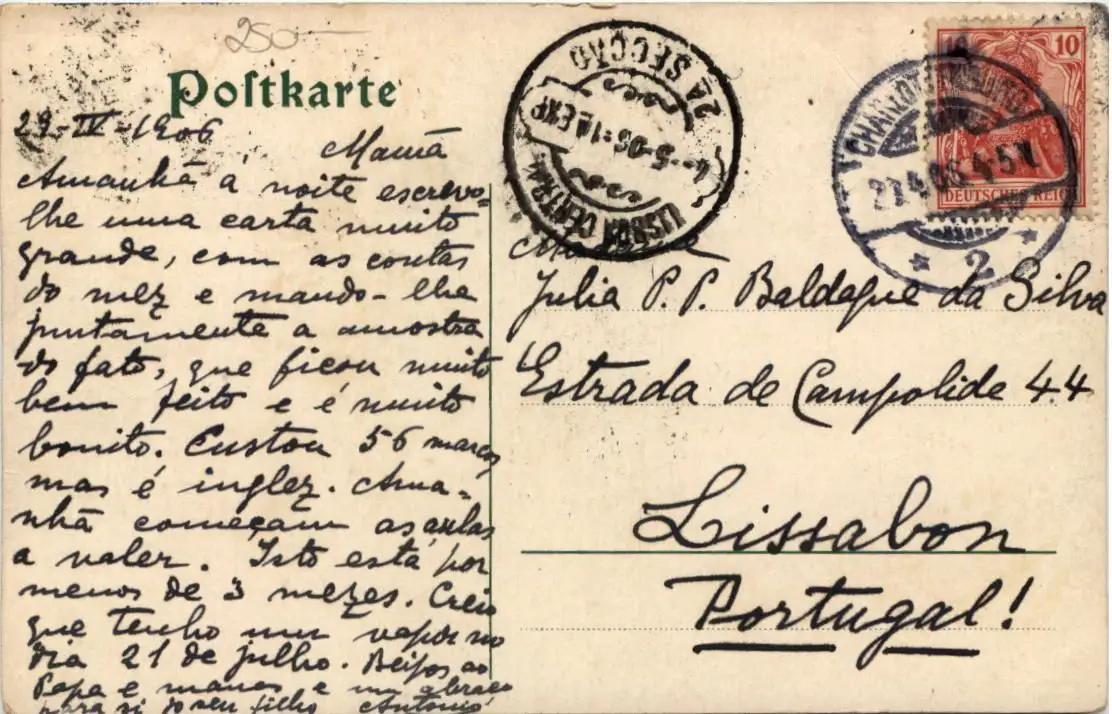 250—
Postkarte
29-IV-1906
Mamã
Amanhã a noite escrevo-
lhe uma carta muito
grande, com as contas
do mez e mando-lhe
juntamente a amostra
do fato, que ficou muito
bem feito e é muito
bonito. Custou 56 marcos
mas é inglez. Ama-
nhã começam as aulas
a valer. Isto está por
menos de 3 mezes. Creio
que tenho um vapor no
dia 21 de julho. Beijos ao
Papa e manos e um abraço
para si do seu filho António
2ª SECÇÃO
4-5-06-1
LISBOA CENTRAL
10
DEUTSCHES REICH
CHARLOTTENBURG
29.4.06.4-5N.
* 2 *
Julia P. P. Baldaque da Silva
Estrada de Campolide 44
Lissabon
Portugal!